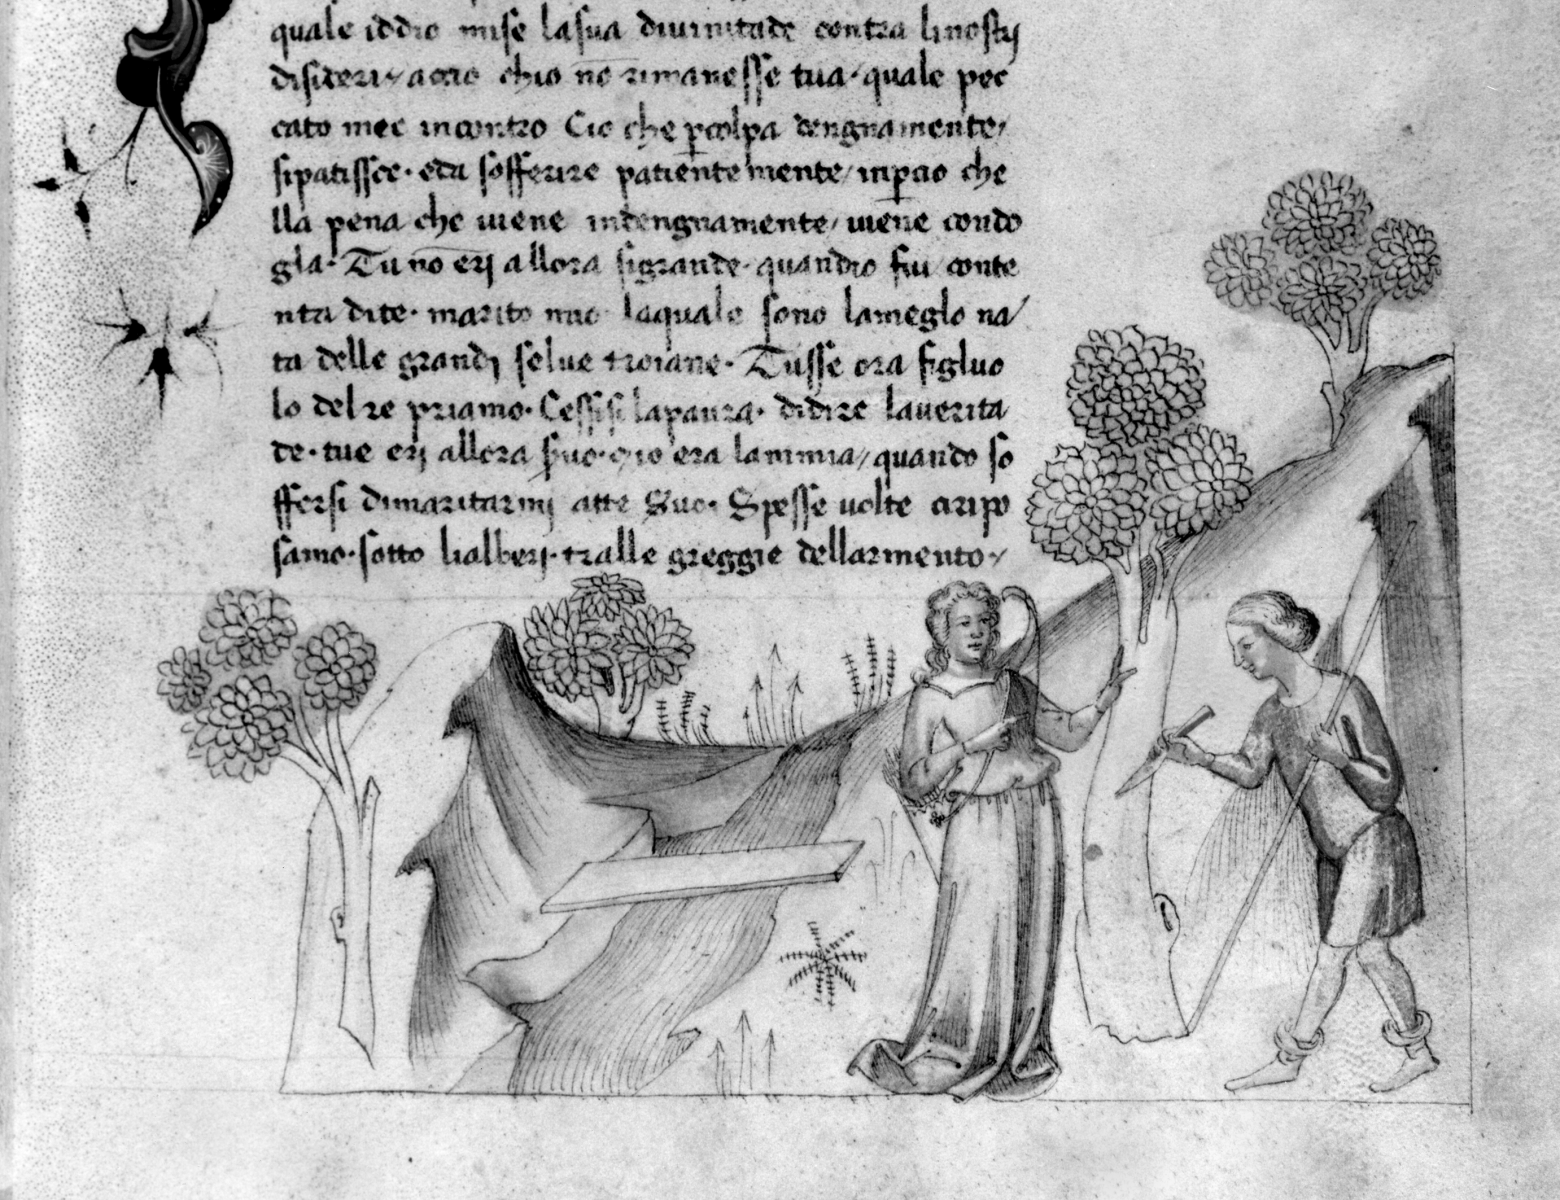 quale iddio mise lasua diuinitade contra linostrj
disideri/ accio chio nō rimanesse tua· quale pec
cato mec incontro Cio che ꝑcolpa dengnamente/
sipatissce· eda sofferire patientemente/ inꝑcio che
lla pena che uiene indengnamente/ uiene condo
gla· Tu nō erj allora sigrande· quandio fui conte
nta dite· marito mio laquale sono lameglo na/
ta delle grandj selue troiane· Tusse ora figluo
lo delre priamo· Cessisi lapaura· didire lauerita
de· tue erj allora suo· chio era lanimia/ quando so
ffersi dimaritarmj atte Suo· Spesse uolte ciripo
samo· sotto lialberj· tralle greggie dellarmento·